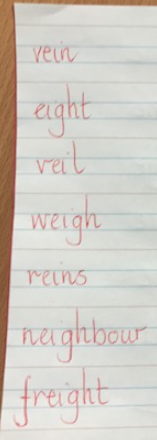 vein
eight
veil
weigh
reins
neighbour
freight